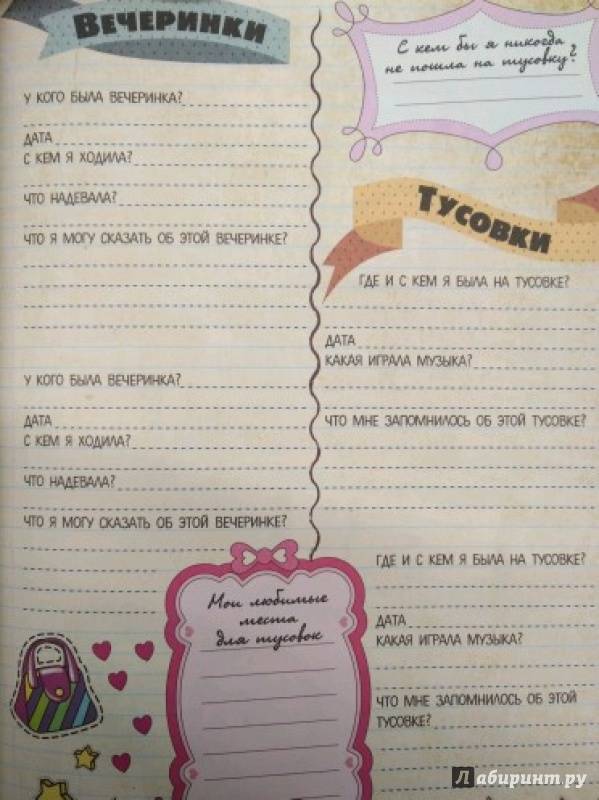 Вечеринки
У КОГО БЫЛА ВЕЧЕРИНКА?
ДАТА
С КЕМ Я ХОДИЛА?
ЧТО НАДЕВАЛА?
ЧТО Я МОГУ СКАЗАТЬ ОБ ЭТОЙ ВЕЧЕРИНКЕ?
У КОГО БЫЛА ВЕЧЕРИНКА?
ДАТА
С КЕМ Я ХОДИЛА?
ЧТО НАДЕВАЛА?
ЧТО Я МОГУ СКАЗАТЬ ОБ ЭТОЙ ВЕЧЕРИНКЕ?
Мои любимые
места
для тусовок
С кем бы я никогда
не пошла на тусовку?
Тусовки
ГДЕ И С КЕМ Я БЫЛА НА ТУСОВКЕ?
ДАТА
КАКАЯ ИГРАЛА МУЗЫКА?
ЧТО МНЕ ЗАПОМНИЛОСЬ ОБ ЭТОЙ ТУСОВКЕ?
ГДЕ И С КЕМ Я БЫЛА НА ТУСОВКЕ?
ДАТА
КАКАЯ ИГРАЛА МУЗЫКА?
ЧТО МНЕ ЗАПОМНИЛОСЬ ОБ ЭТОЙ
ТУСОВКЕ?
Лабиринт.ру